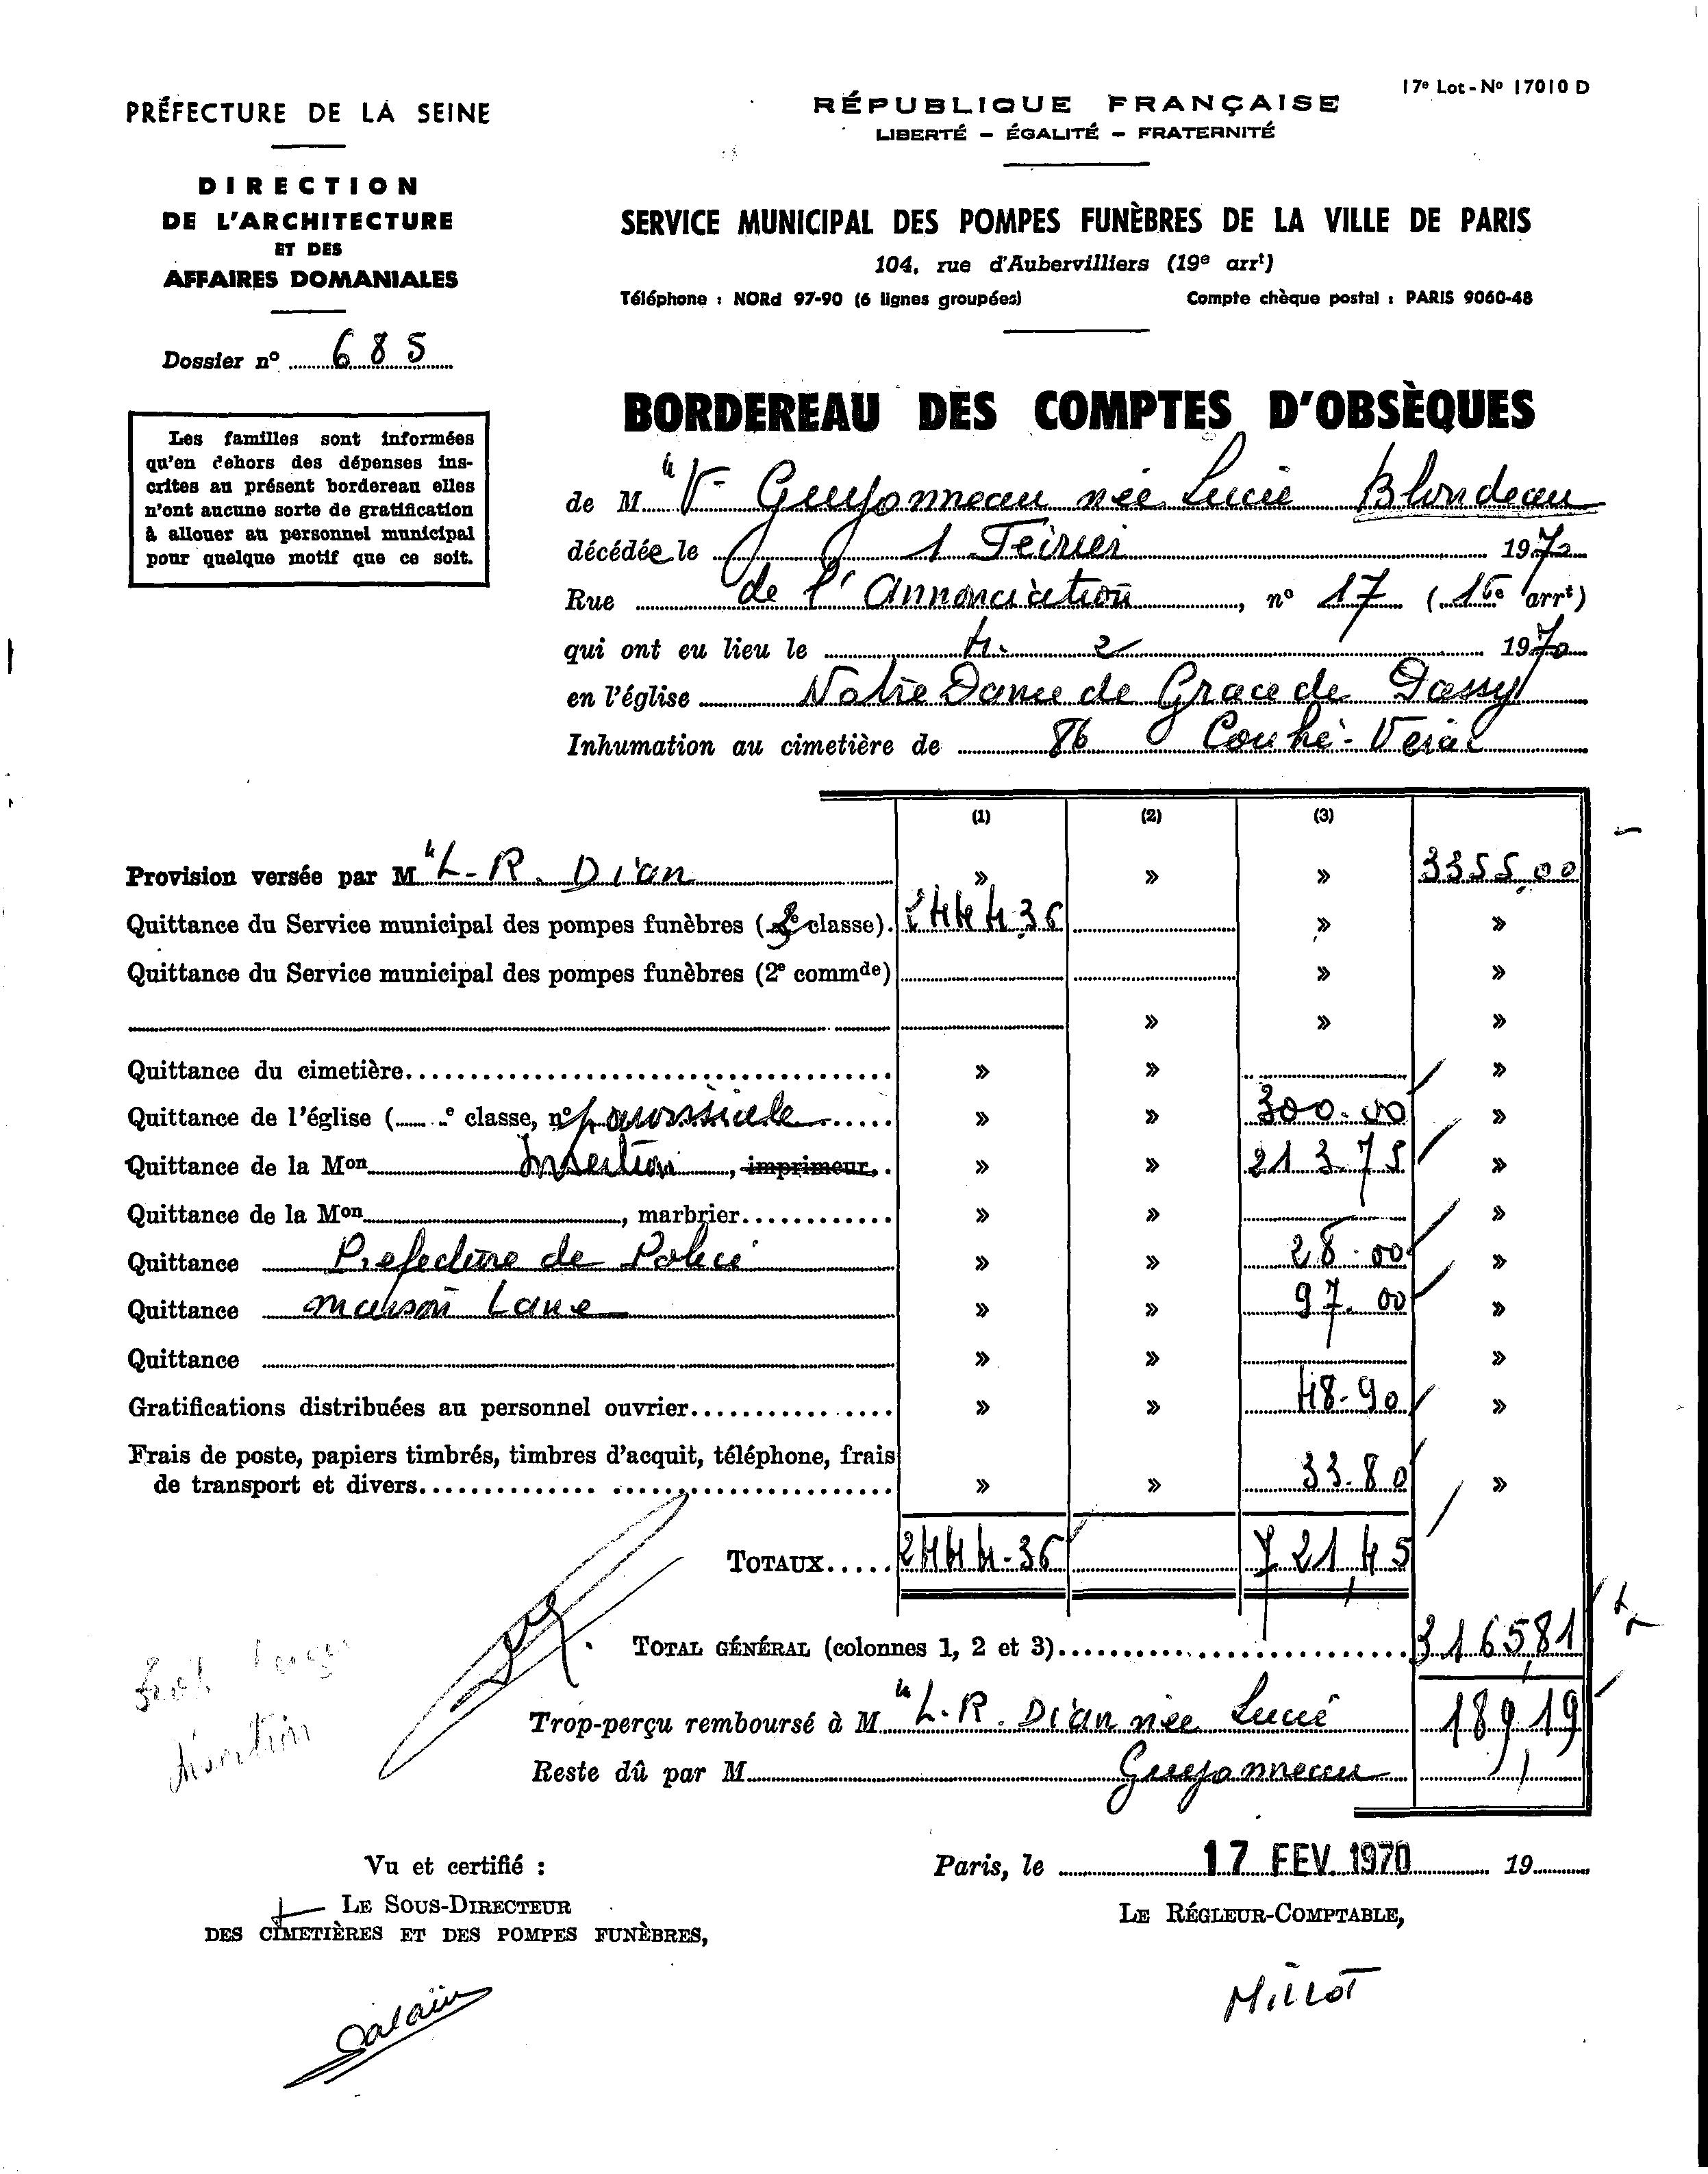 17e Lot - No 17010 D
PRÉFECTURE DE LA SEINE
RÉPUBLIQUE FRANÇAISE
LIBERTÉ – ÉGALITÉ – FRATERNITÉ
DIRECTION
DE L'ARCHITECTURE
ET DES
AFFAIRES DOMANIALES
SERVICE MUNICIPAL DES POMPES FUNÈBRES DE LA VILLE DE PARIS
104, rue d'Aubervilliers (19e arrt)
Téléphone : NORd 97-90 (6 lignes groupées) Compte chèque postal : PARIS 9060-48
Dossier no 685
Les familles sont informées
qu'en dehors des dépenses ins-
crites au présent bordereau elles
n'ont aucune sorte de gratification
à allouer au personnel municipal
pour quelque motif que ce soit.
BORDEREAU DES COMPTES D'OBSÈQUES
de M Ve Guyonneau née Lucie Blondeau
décédée le 1 Février 1970
Rue de l'Annonciation, no 17 (16e arrt)
qui ont eu lieu le 4. 2 1970
en l'église Notre Dame de Grace de Passy
Inhumation au cimetière de 86 Couhé-Vérac
(1) (2) (3)
Provision versée par M L-R. Dian » » » 3355,00
Quittance du Service municipal des pompes funèbres (e classe). 2444.36 » »
Quittance du Service municipal des pompes funèbres (2e commde) » »
» » »
Quittance du cimetière » » »
Quittance de l'église (e classe, no paroissiale » » 300.00 »
Quittance de la Mon Insertion, imprimeur. » » 213.75 »
Quittance de la Mon, marbrier » » »
Quittance Prefecture de Police » » 28.00 »
Quittance maison Lane » » 97.00 »
Quittance » » »
Gratifications distribuées au personnel ouvrier » » 48.90 »
Frais de poste, papiers timbrés, timbres d'acquit, téléphone, frais
de transport et divers » » 33.80 »
TOTAUX 2444-36 721,45
TOTAL GÉNÉRAL (colonnes 1, 2 et 3) 3165,81
Trop-perçu remboursé à M L.R. Dian née Lucie 189,19
Reste dû par M Guyonneau
Insertion
Vu et certifié :
LE SOUS-DIRECTEUR
DES CIMETIÈRES ET DES POMPES FUNÈBRES,
Paris, le 17 FEV. 1970 19
LE RÉGLEUR-COMPTABLE,
Salaün
Millot